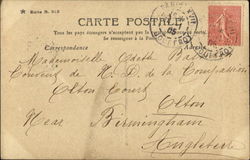 CARTE POSTALE
Tous les pays étrangers n'acceptent pas la
Se renseigner à la Poste
Correspondance Adresse
Mademoiselle Edith
Couvent de N. D. de la Compassion
Olton Court
Olton
Near Birmingham
Angleterre